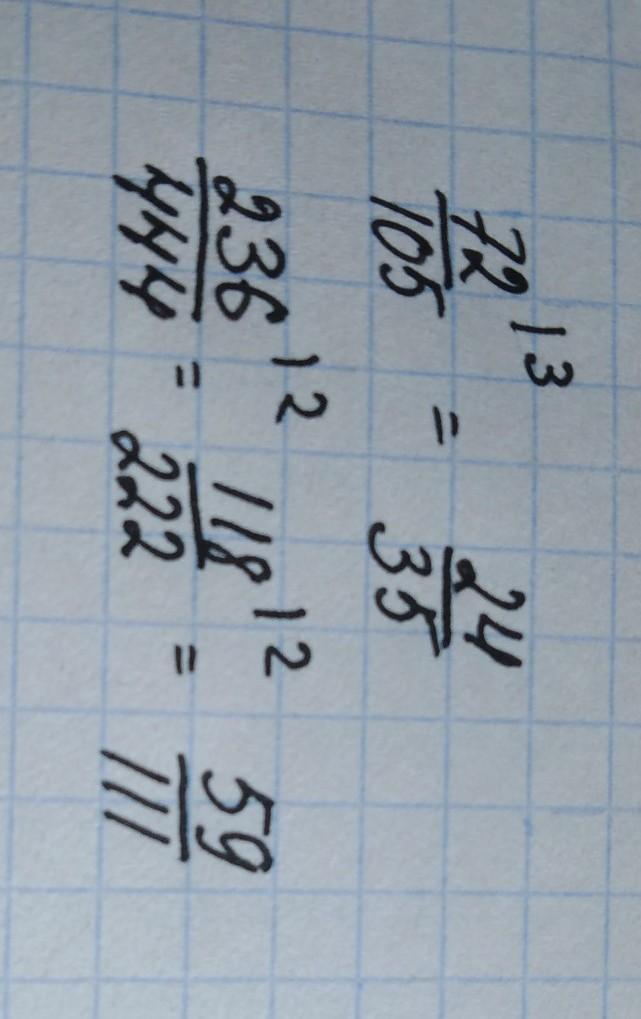 72/105 |3 = 24/35
236/444 |2 = 118/222 |2 = 59/111